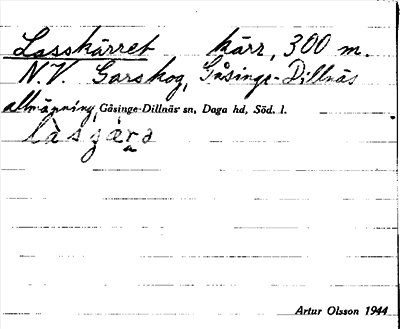 Lasskärret kärr, 300 m.
N.V. Garskog, Gåsinge-Dillnäs
allmänning, Gåsinge-Dillnäs sn, Daga hd, Söd. l.
Artur Olsson 1944